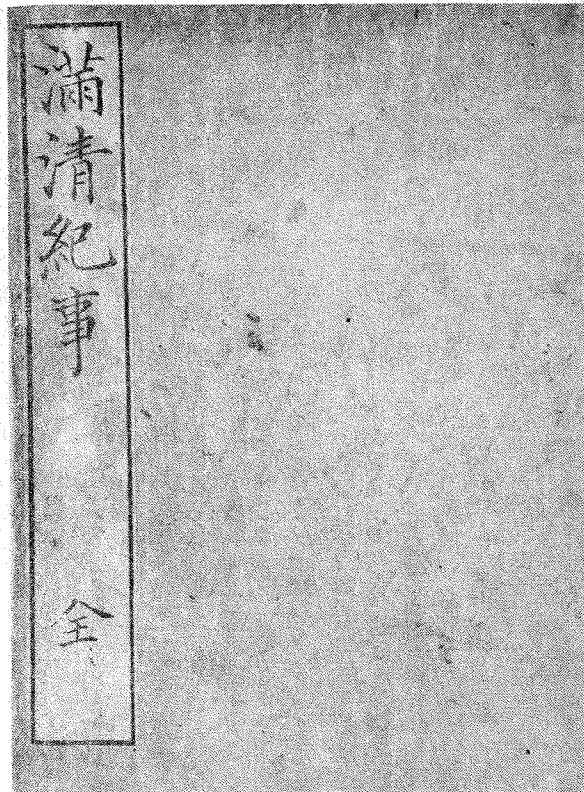 滿清紀事
全